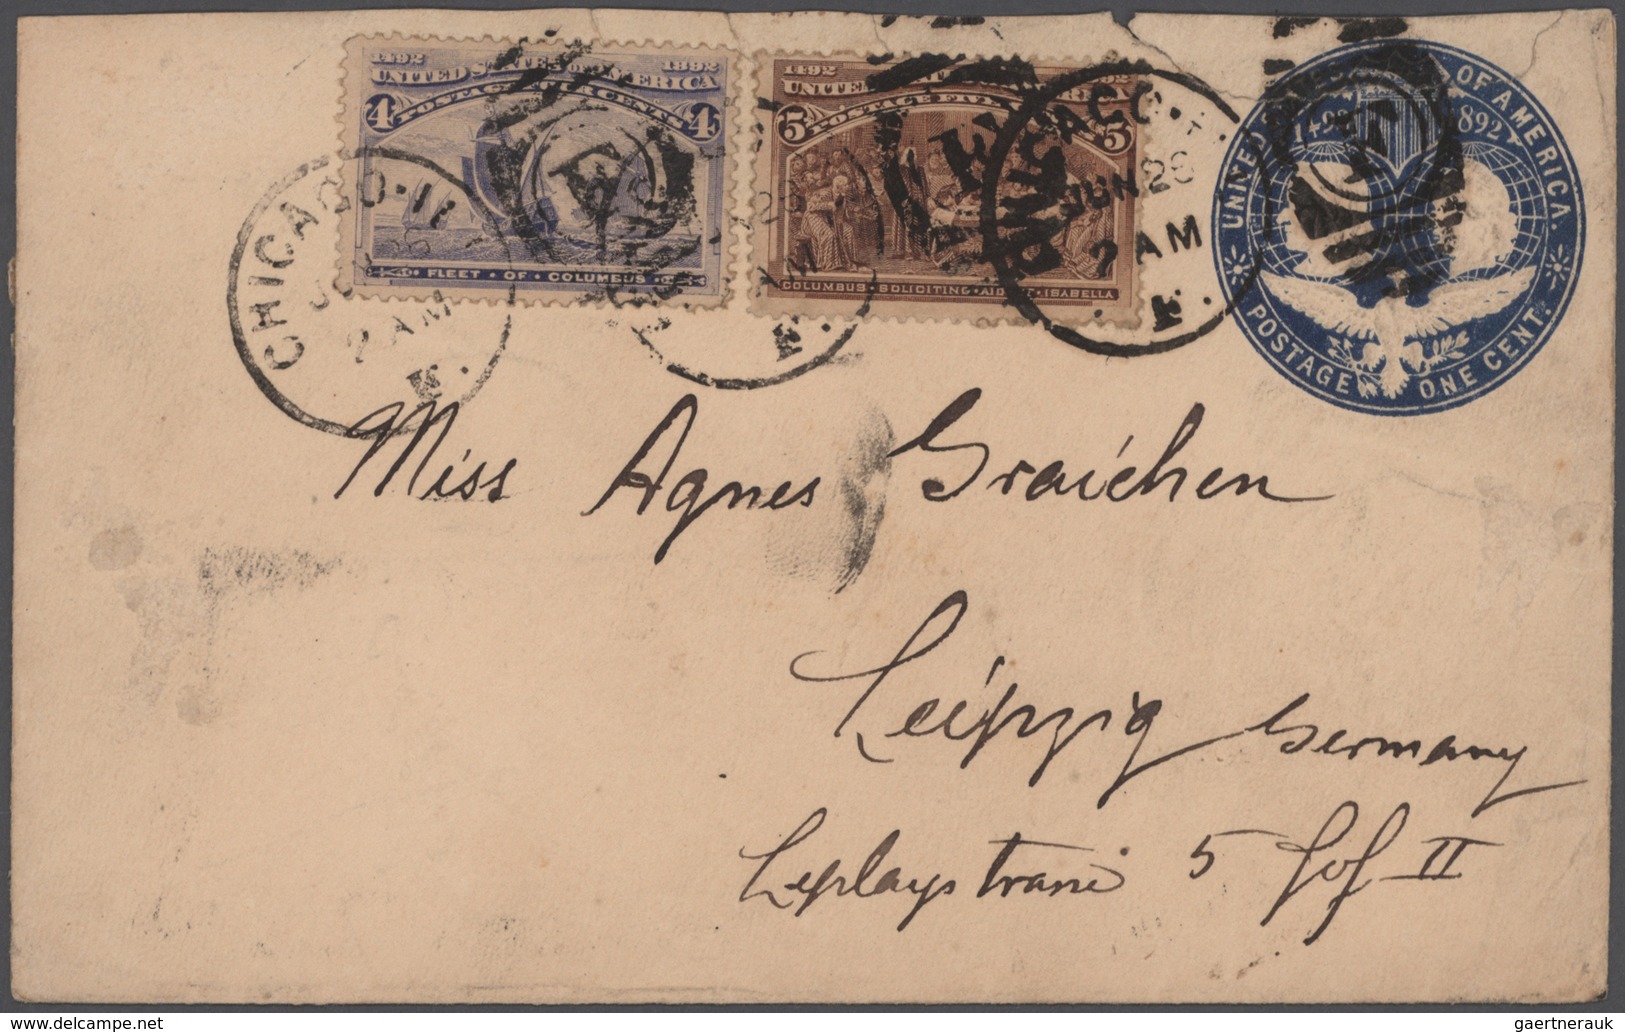 1492 1892
UNITED STATES OF AMERICA
POSTAGE FOUR CENTS
4 4
FLEET OF COLUMBUS
1492
UNITED AMERICA
POSTAGE FIVE
5 5
COLUMBUS SOLICITING AID ISABELLA
UNITED OF AMERICA
1892
POSTAGE ONE CENT.
CHICAGO·ILL
2 AM
F.
F.
CHICAGO
JUN 26
2 AM
F.
Miss Agnes Graichen
Leipzig Germany
5 Hof II
gaertnerauk / delcampe.net